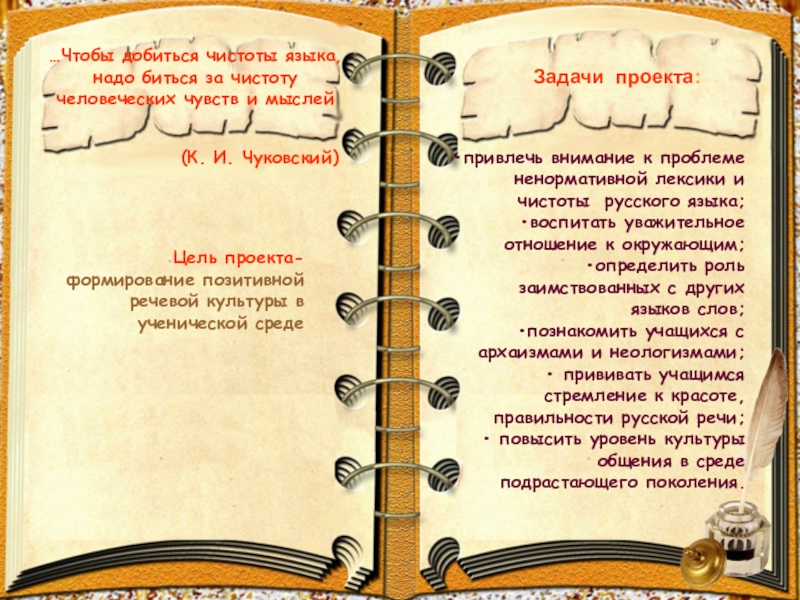 …Чтобы добиться чистоты языка,
надо биться за чистоту
человеческих чувств и мыслей
(К. И. Чуковский)
Цель проекта-
формирование позитивной
речевой культуры в
ученической среде
Задачи проекта:
•привлечь внимание к проблеме
ненормативной лексики и
чистоты русского языка;
•воспитать уважительное
отношение к окружающим;
•определить роль
заимствованных с других
языков слов;
•познакомить учащихся с
архаизмами и неологизмами;
• прививать учащимся
стремление к красоте,
правильности русской речи;
• повысить уровень культуры
общения в среде
подрастающего поколения.